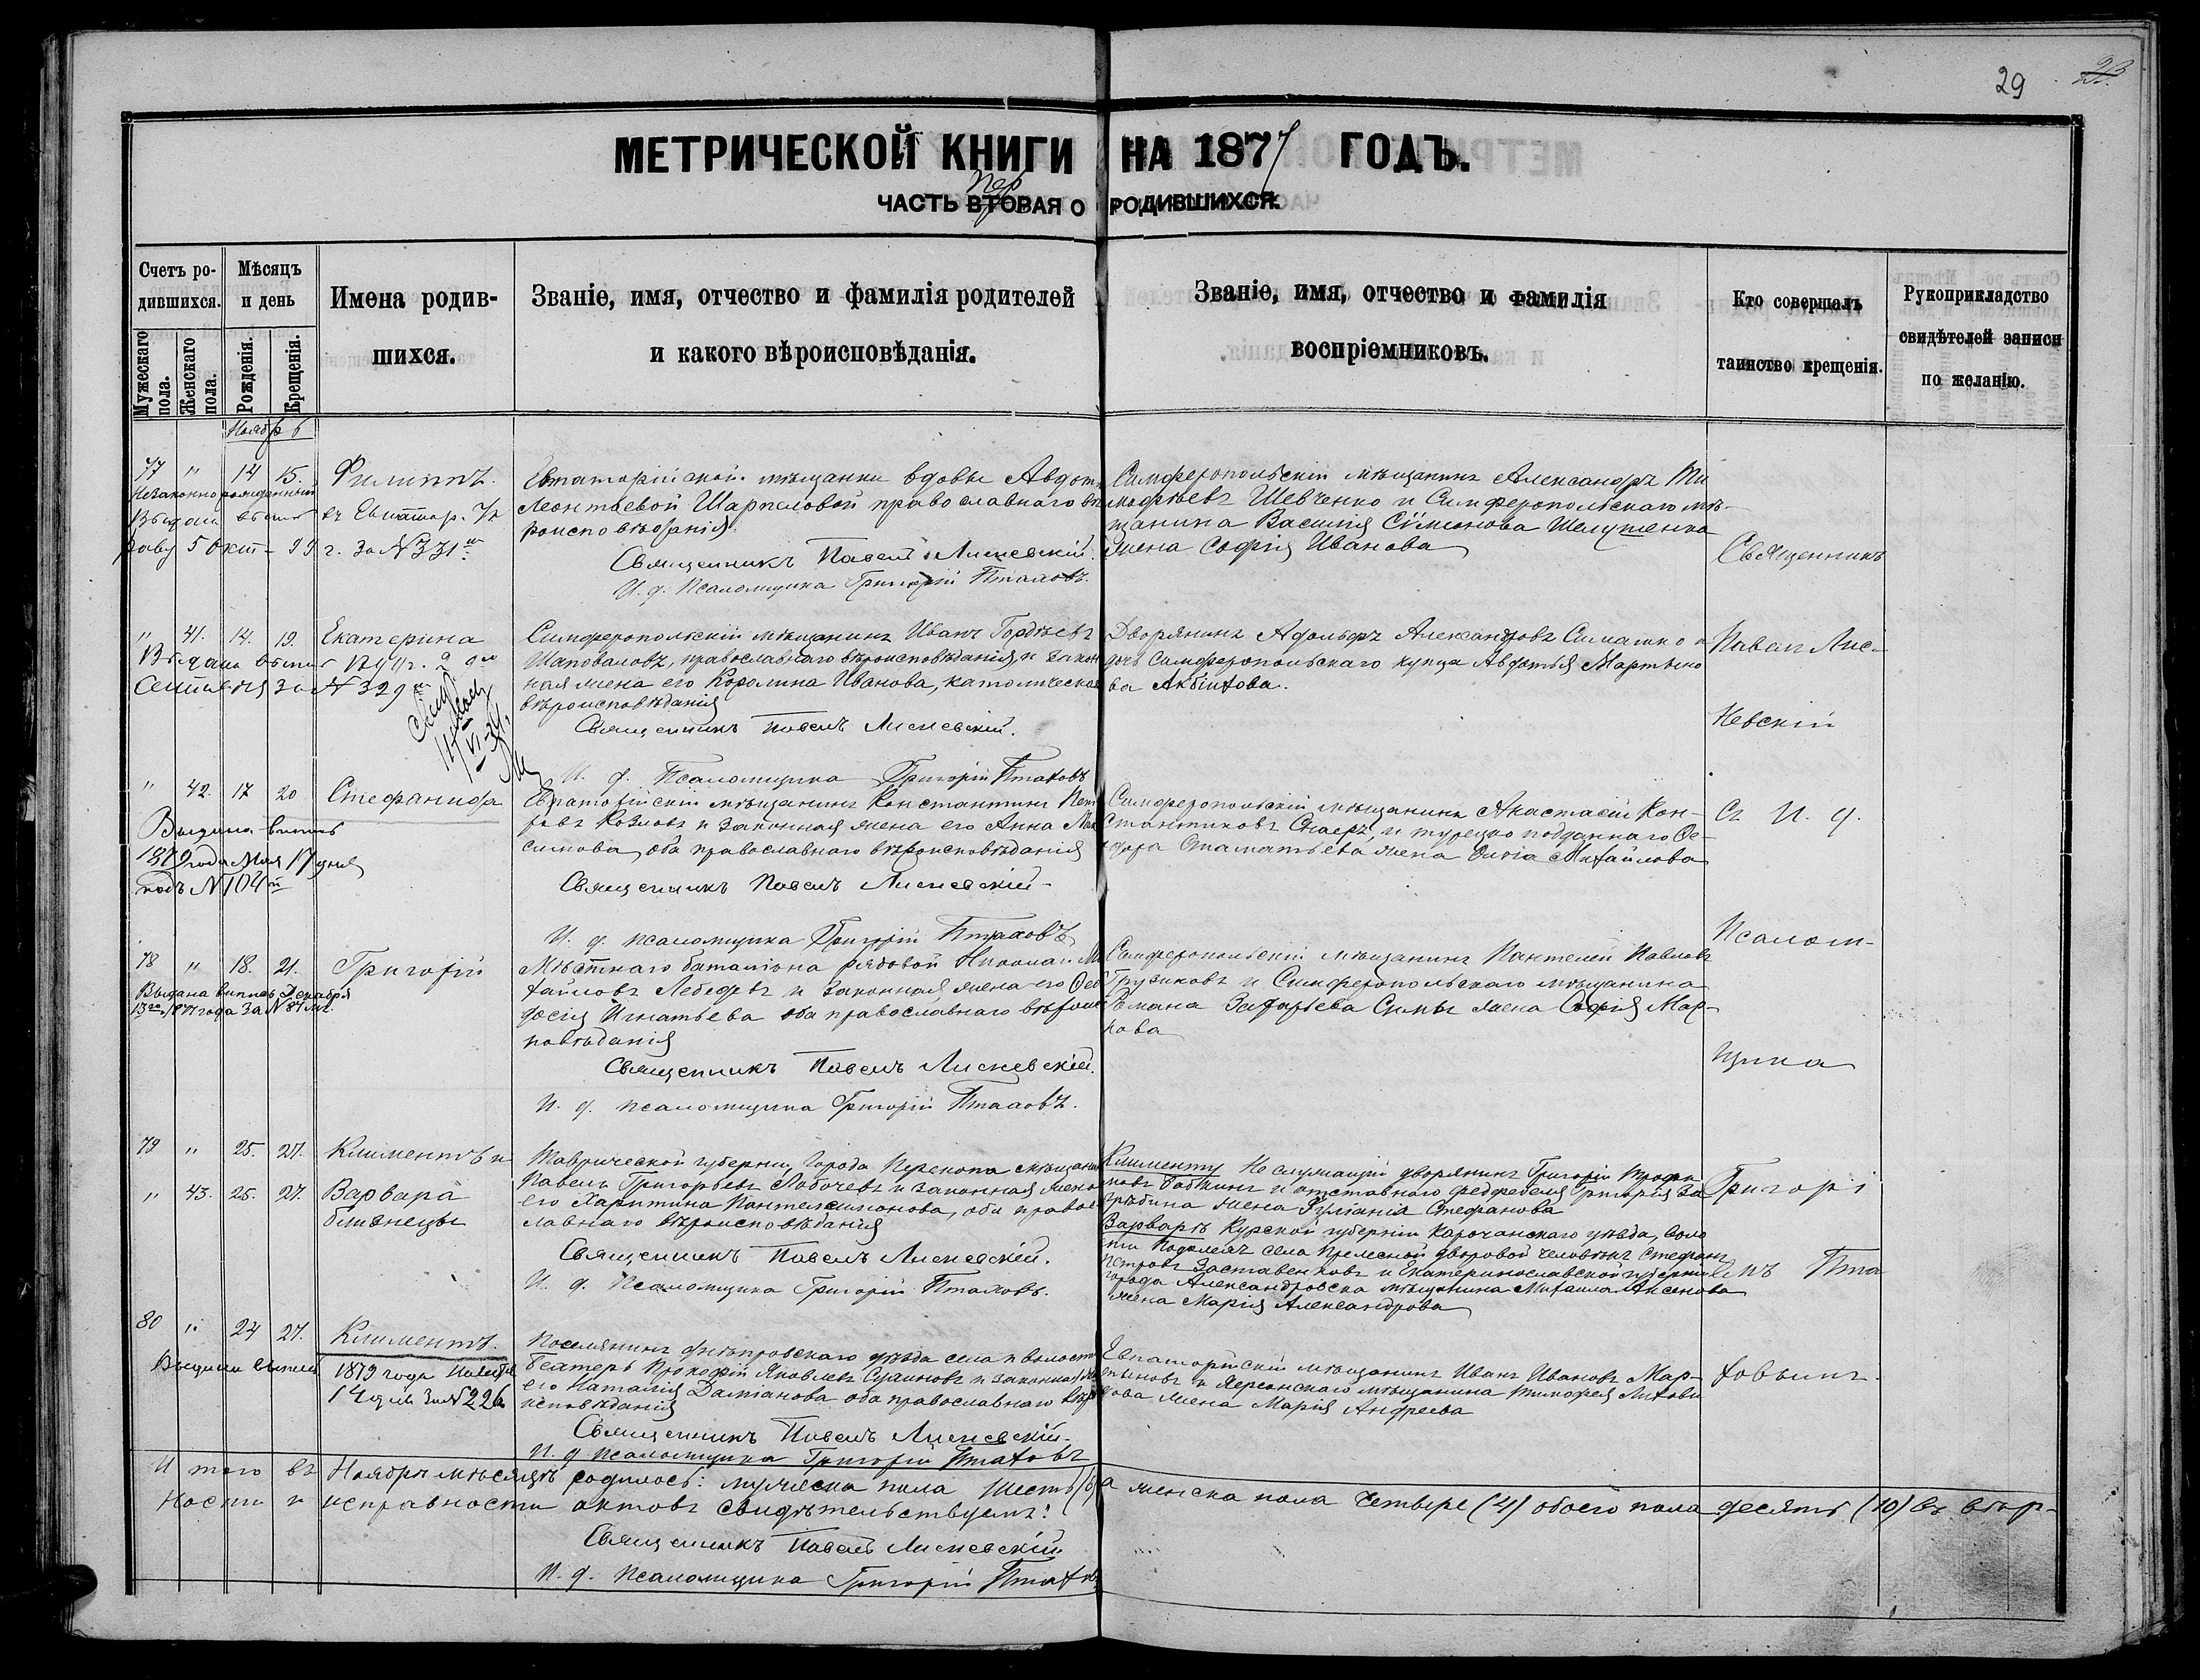 29 23
МЕТРИЧЕСКОЙ КНИГИ НА 1877 ГОДЪ.
пер
ЧАСТЬ ВТОРАЯ О РОДИВШИХСЯ.
Счетъ ро-
дившихся.
Мужескаго пола.
Женскаго пола.
Мѣсяцъ
и день
Рожденія.
Крещенія.
Имена родив-
шихся.
Званіе, имя, отчество и фамилія родителей
и какого вѣроисповѣданія.
Званіе, имя, отчество и фамилія
воспріемниковъ.
Кто совершалъ
таинство крещенія.
Рукоприкладство
свидѣтелей записи
по желанію.
Ноябрь
77 " 14 15. Филиппъ.
Незаконнорожденный
Выдан выпис въ Евпатор. Уп
раву 5 Окт - 99 г. за № 331
Евпаторійской мѣщанки вдовы Авдоть
Леонтьевой Шараповой православнаго вѣ
роисповѣданія.
Священникъ Павелъ Лисневскій.
И. д. Псаломщика Григорій Птаховъ.
Симферопольскій мѣщанинъ Александръ Ти
мофѣевъ Шевченко и Симферопольскаго мѣ-
щанина Василія Сѵмеонова
жена Софія Иванова
Священникъ
" 41. 14. 19. Екатерина
Выдана выпись 1899 г. 2 дня
Сентября за № 329
Симферопольскій мѣщанинъ Иванъ Гордѣевъ
Шаповаловъ, православнаго вѣроисповѣданія, и закон
ная жена его Каролина Иванова, католическаго
вѣроисповѣданія
Священникъ Павелъ Лисневскій.
И. д. Псаломщика Григорій Птаховъ
Дворянинъ Адольфъ Александровъ Симашко и
дочь Симферопольскаго купца Авдотья Мартыно
ва Акбіитова.
Павелъ Лис-
невскій
" 42. 17 20 Стефанида
Выдана выпись
1879 года Мая 17 дня
подъ № 104й
Евпаторійскій мѣщанинъ Константинъ Пет
ровъ Козловъ и законная жена его Анна Мак
симова, оба православнаго вѣроисповѣданія
Священникъ Павелъ Лисневскій-
И. д. псаломщика Григорій Птаховъ
Симферопольскій мѣщанинъ Анастасій Кон-
стантиновъ и турецко подданнаго Ѳе-
дора жена Михайлова
съ И. д.
78 " 18. 21. Григорій
Выдана выпись Декабря
13го 1877 года за № 84
Мѣстнаго баталіона рядовой Николай Ми
хайловъ Лебедевъ и законная жена его Ѳео
досія Игнатьева оба православнаго вѣроис
повѣданія
Священникъ Павелъ Лисневскій.
И. д. псаломщика Григорій Птаховъ.
Симферопольскій мѣщанинъ Пантелей Павловъ
Грузиновъ и Симферопольскаго мѣщанина
Романа Захарьева жена Софія Мар-
кова
Псалом-
щика
79 " 25. 27. Климентъ и
" 43. 25. 27. Варвара
близнецы
Таврической губерніи, города Перекопа мѣщанин
Павелъ Григорьевъ Лобачевъ и законная жена
его Харитина Пантелеимонова, оба правос
лавнаго вѣроисповѣданія
Священникъ Павелъ Лисневскій.
И. д. Псаломщика Григорій Птаховъ.
Клименту Не служащій дворянинъ Григорій Трофи
мовъ Бабкинъ и отставнаго фелдфебеля Григорія За
жена Іуліанія Стефанова
Варварѣ Курской губерніи Корочанскаго уѣзда, воло
сти села дворовой человѣкъ Стефанъ
Петровъ Заставенковъ и Екатеринославской губерніи
города Александровска мѣщанина Михаила Аксенова
жена Марія Александрова
Григорі
емъ Пта
80 " 24 27. Климентъ.
Выдана выпись 1879 года Ноября
14 дня за № 226
Поселянинъ Днѣпровскаго уѣзда села и волости
Прокофій Яковлевъ и законная же
его Наталія Даміанова оба православнаго вѣро
исповѣданія
Священникъ Павелъ Лисневскій-
И. д. псаломщика Григорій Птаховъ
Евпаторійскій мѣщанинъ Иванъ Ивановъ Мар-
тыновъ и Херсонскаго мѣщанина Тимофея
жена Марія Андреева
ховымъ.
И того въ Ноябрѣ мѣсяцѣ родилось: мужеска пола шесть (6) а женска пола четыре (4) обоего пола десять (10) въ вѣр-
ности и исправности актовъ свидѣтельствуемъ:
Священникъ Павелъ Лисневскій
И. д. псаломщика Григорій Птаховъ